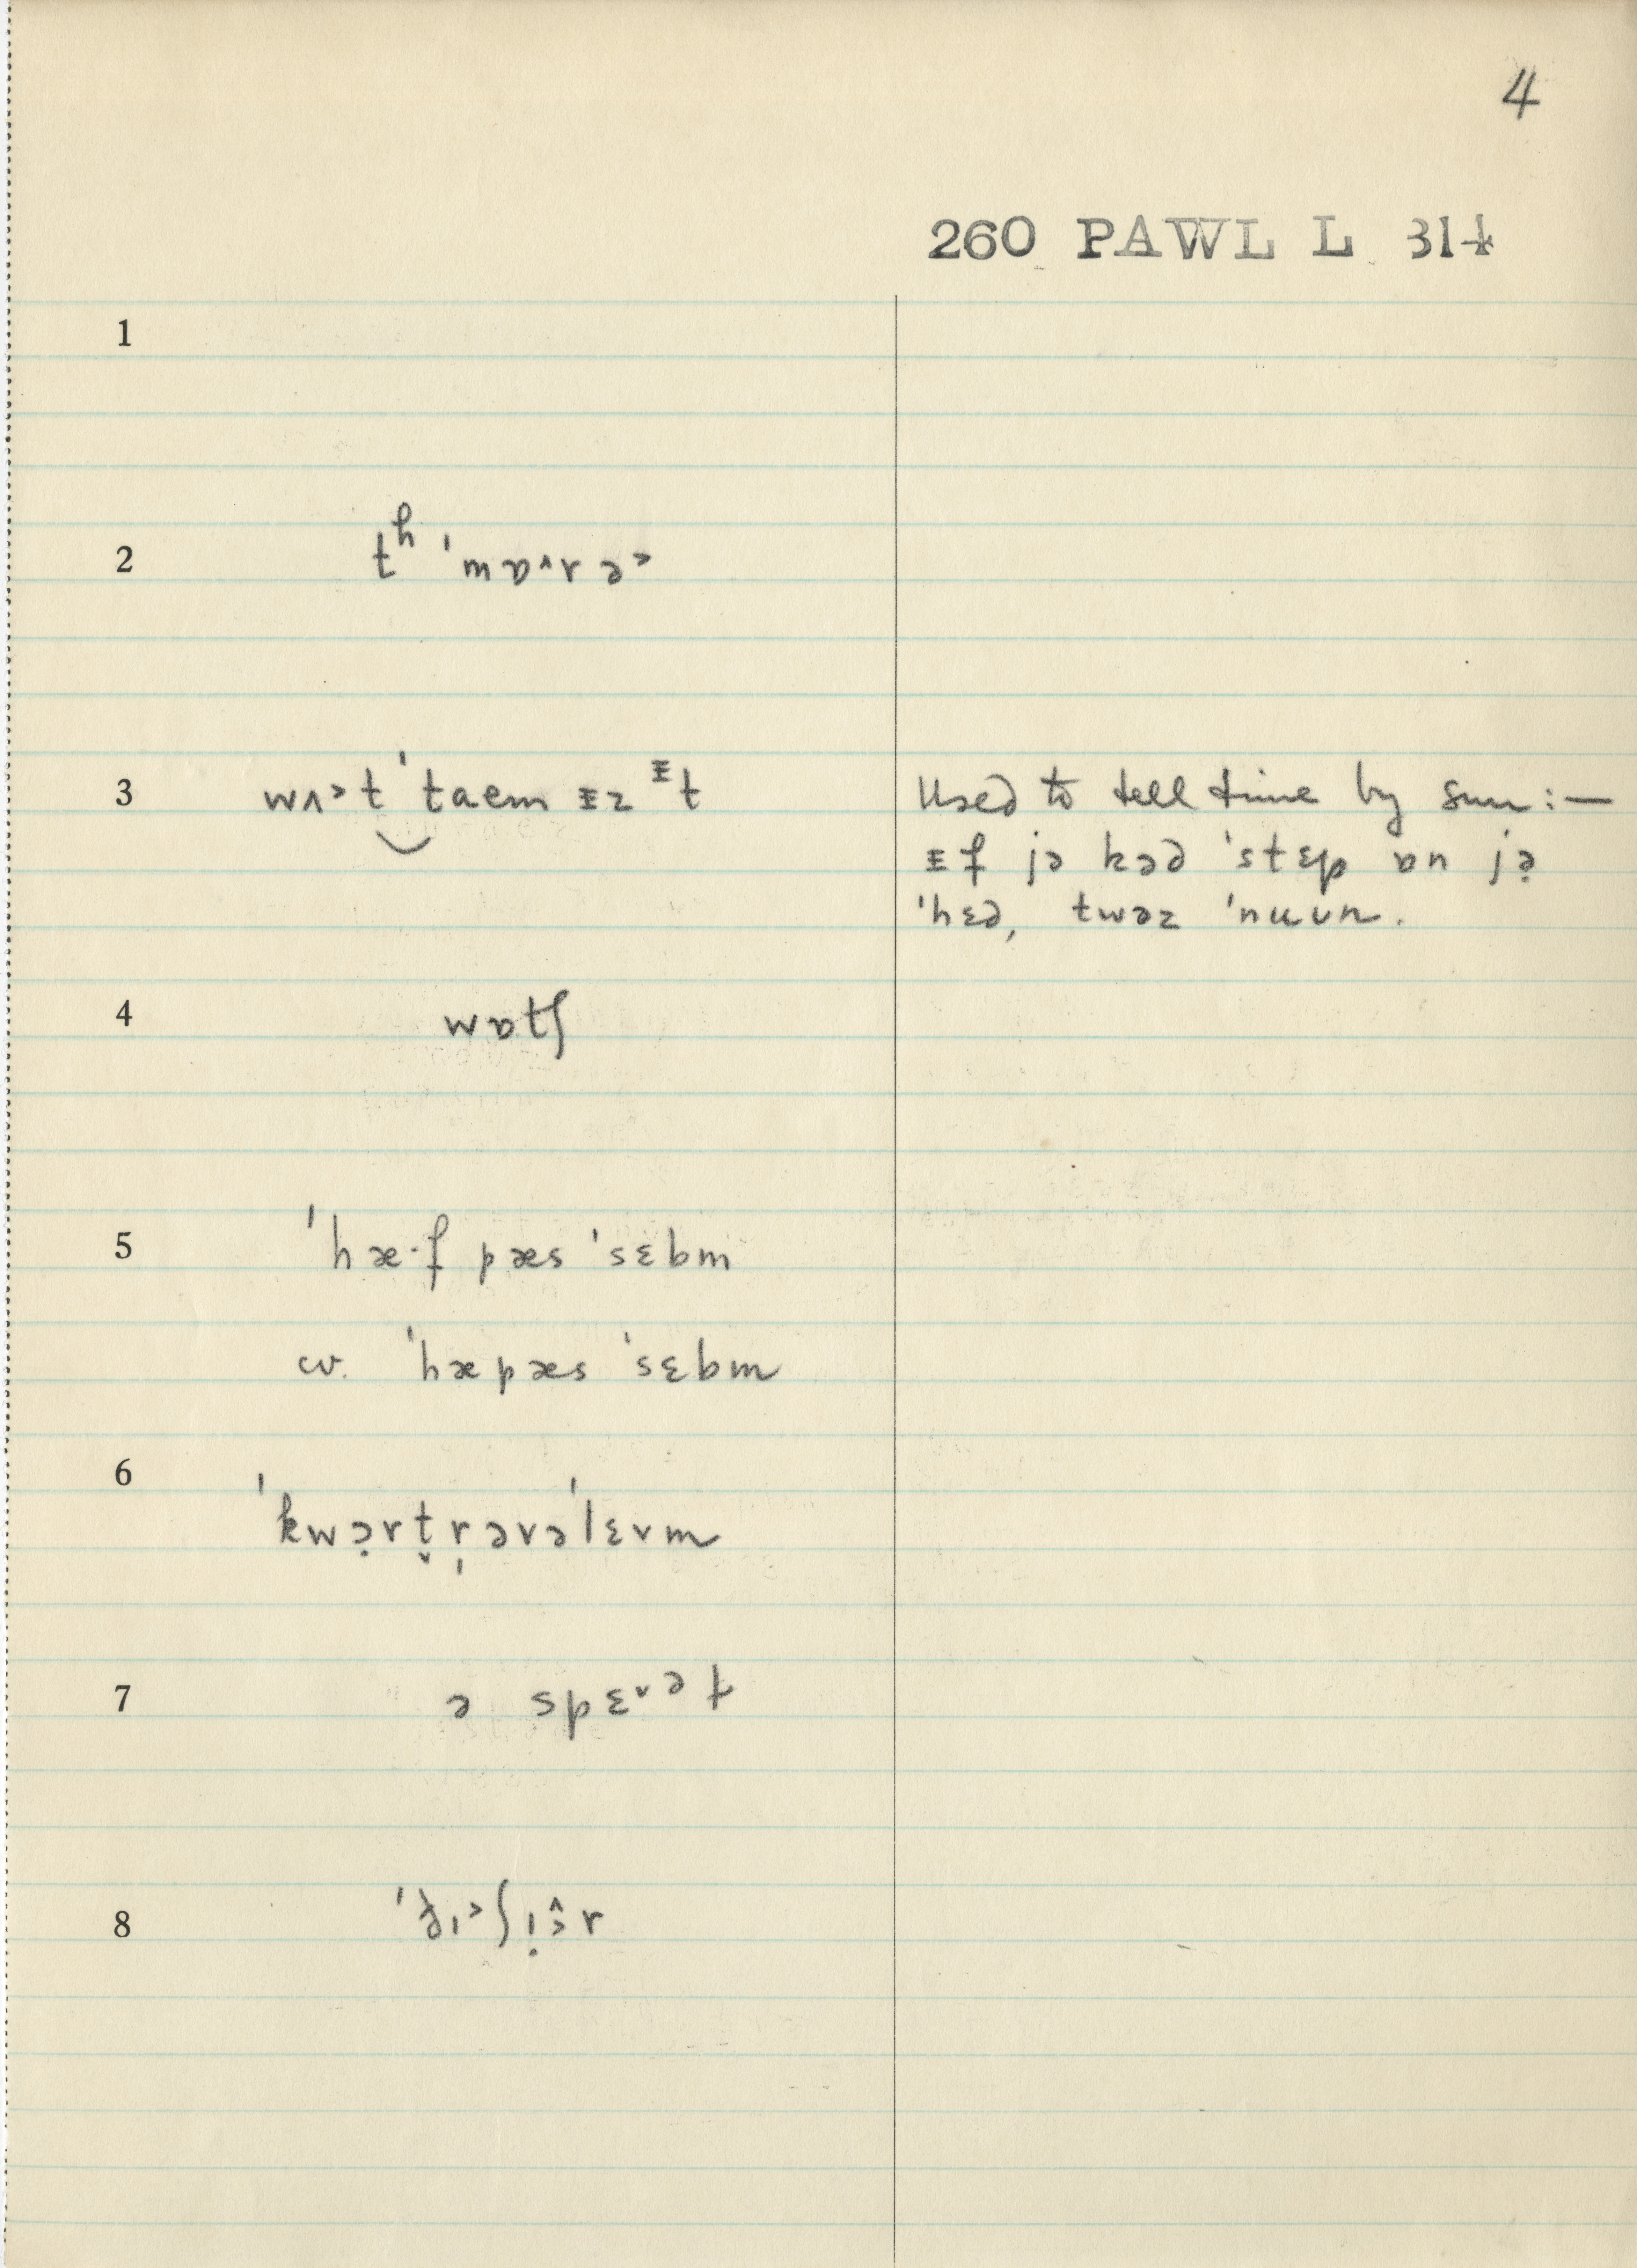 4
260 PAWL L 314
1
2 tʰ ˈmɒ^rə˃
3 wʌ˃t‿ˈtaem ᵻz ᵻt
Used to tell time by sun:—
ᵻf jə kəd ˈstɛp ɒn jə̣
ˈhɛd, twəz ˈnuun.
4 wɒtʃ
5 ˈhæ·f pæs ˈsɛbm
cv. ˈhæpæs ˈsɛbm
6 ˈkwɔ̣rt̬r̩əvəˈlɛvm
7 ə spɛ˅ə t